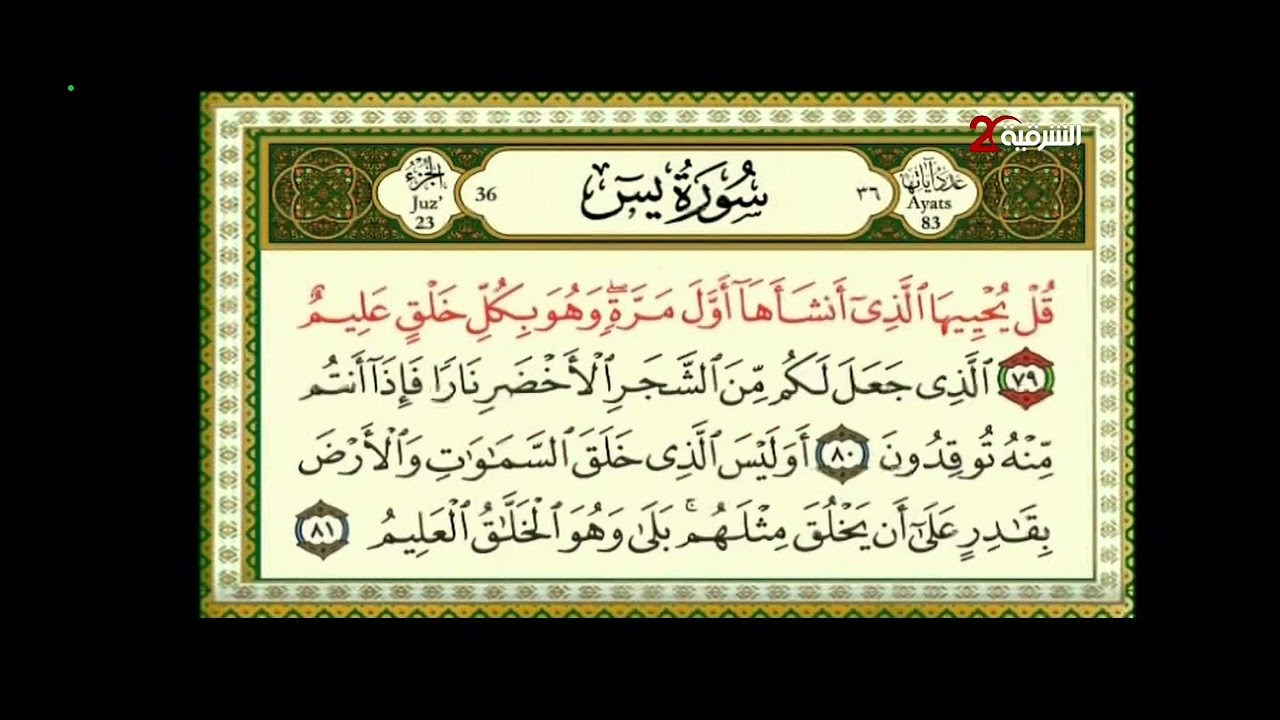 20 الشرقية
الجزء
Juz'
23
36
سُورَةُ يسٓ
٣٦
عدد آياتها
Ayats
83
قُلْ يُحْيِيهَا ٱلَّذِىٓ أَنشَأَهَآ أَوَّلَ مَرَّةٍۖ وَهُوَ بِكُلِّ خَلْقٍ عَلِيمٌ
٧٩ ٱلَّذِى جَعَلَ لَكُم مِّنَ ٱلشَّجَرِ ٱلْأَخْضَرِ نَارًا فَإِذَآ أَنتُم
مِّنْهُ تُوقِدُونَ ٨٠ أَوَلَيْسَ ٱلَّذِى خَلَقَ ٱلسَّمَـٰوَٰتِ وَٱلْأَرْضَ
بِقَـٰدِرٍ عَلَىٰٓ أَن يَخْلُقَ مِثْلَهُمۚ بَلَىٰ وَهُوَ ٱلْخَلَّـٰقُ ٱلْعَلِيمُ ٨١